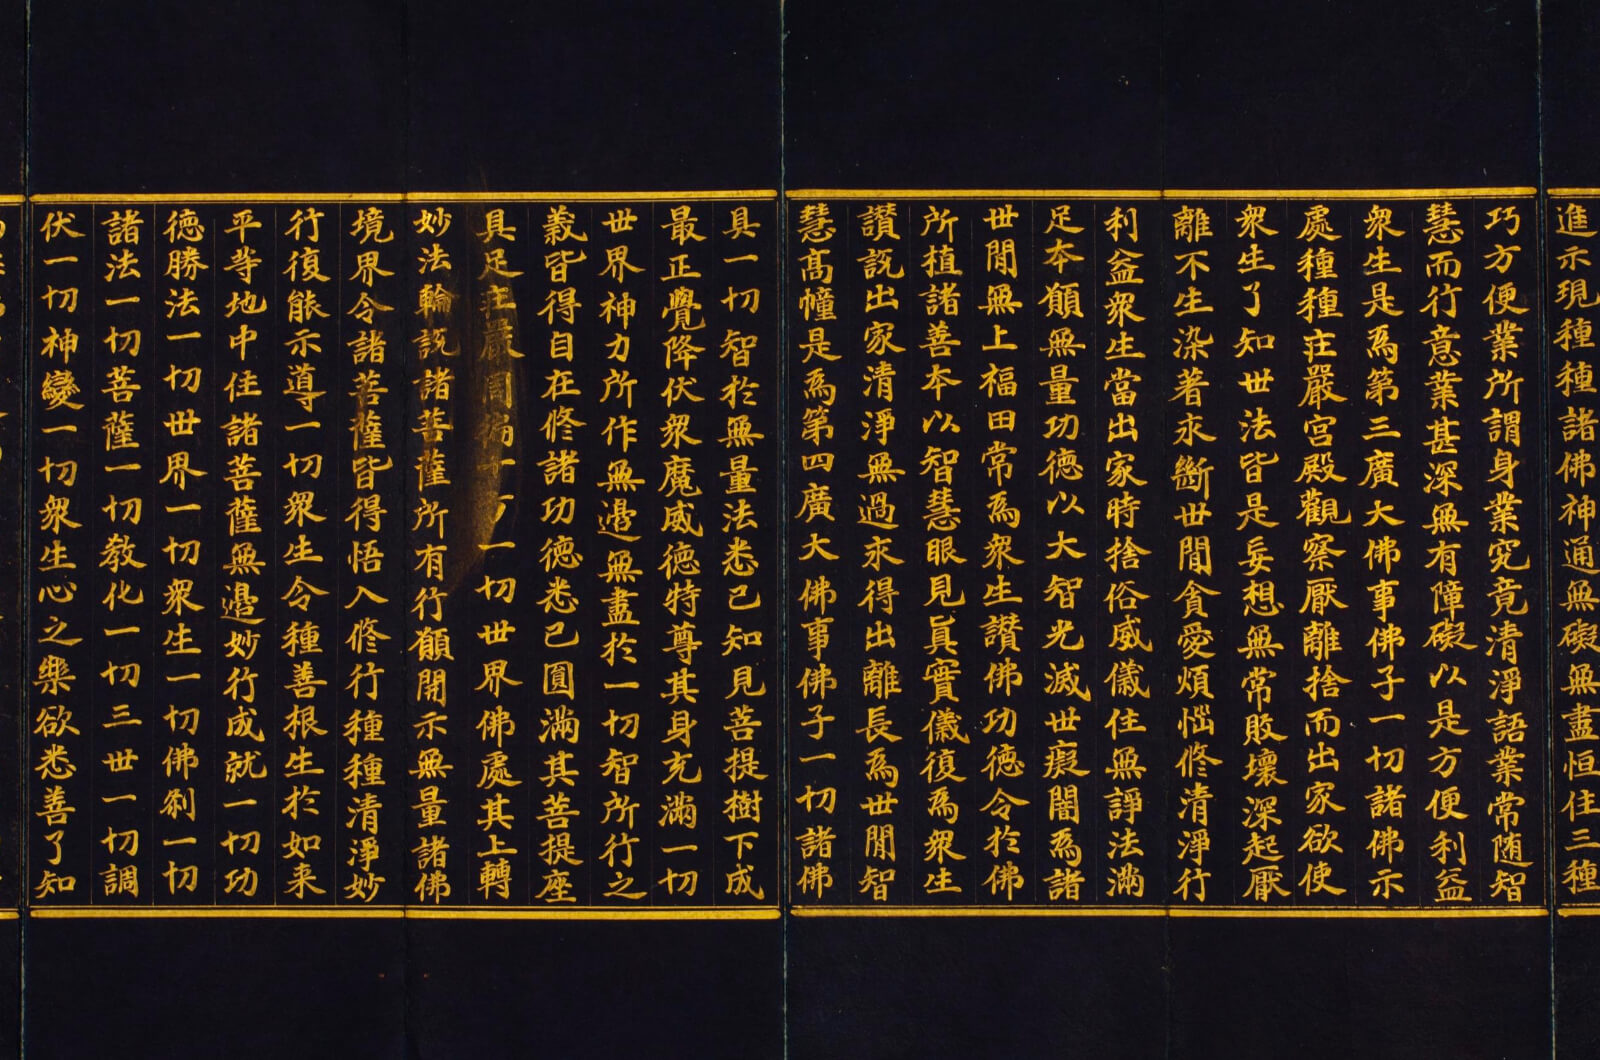 進示現種種諸佛神通無礙無盡恒住三種
巧方便業所謂身業究竟清淨語業常随智
慧而行意業甚深無有障礙以是方便利益
衆生是爲第三廣大佛事佛子一切諸佛示
處種種莊嚴宮殿觀察厭離捨而出家欲使
衆生了知世法皆是妄想無常敗壞深起厭
離不生染著永斷世間貪愛煩惱修清淨行
利益衆生當出家時捨俗威儀住無諍法滿
足本願無量功德以大智光滅世癡闇爲諸
世間無上福田常爲衆生讃佛功德令於佛
所植諸善本以智慧眼見真實儀復爲衆生
讃説出家清淨無過永得出離長爲世間智
慧高幢是爲第四廣大佛事佛子一切諸佛
具一切智於無量法悉已知見菩提樹下成
最正覺降伏衆魔威德特尊其身充滿一切
世界神力所作無邊無盡於一切智所行之
義皆得自在修諸功德悉已圓滿其菩提座
具足莊嚴周遍十方一切世界佛處其上轉
妙法輪説諸菩薩所有行願開示無量諸佛
境界令諸菩薩皆得悟入修行種種清淨妙
行復能示導一切衆生令種善根生於如来
平等地中住諸菩薩無邊妙行成就一切功
德勝法一切世界一切衆生一切佛刹一切
諸法一切菩薩一切教化一切三世一切調
伏一切神變一切衆生心之樂欲悉善了知